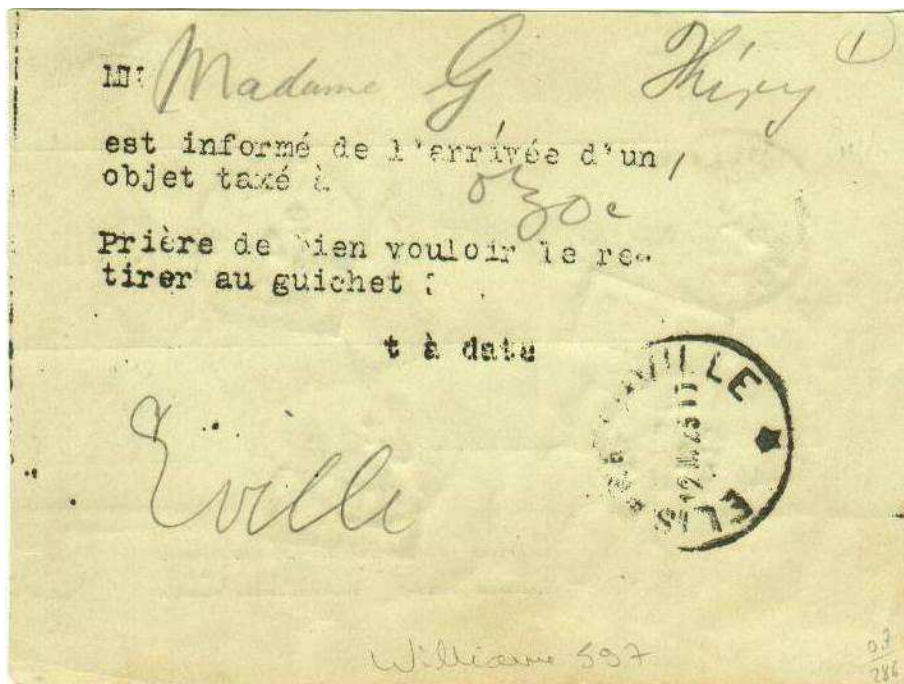 ①
M Madame G Théry
est informé de l'arrivée d'un
objet taxé à 0f30c
Prière de bien vouloir le re-
tirer au guichet :
t à date
Eville
ELIS VILLE ★
Williame 597
0.7
286